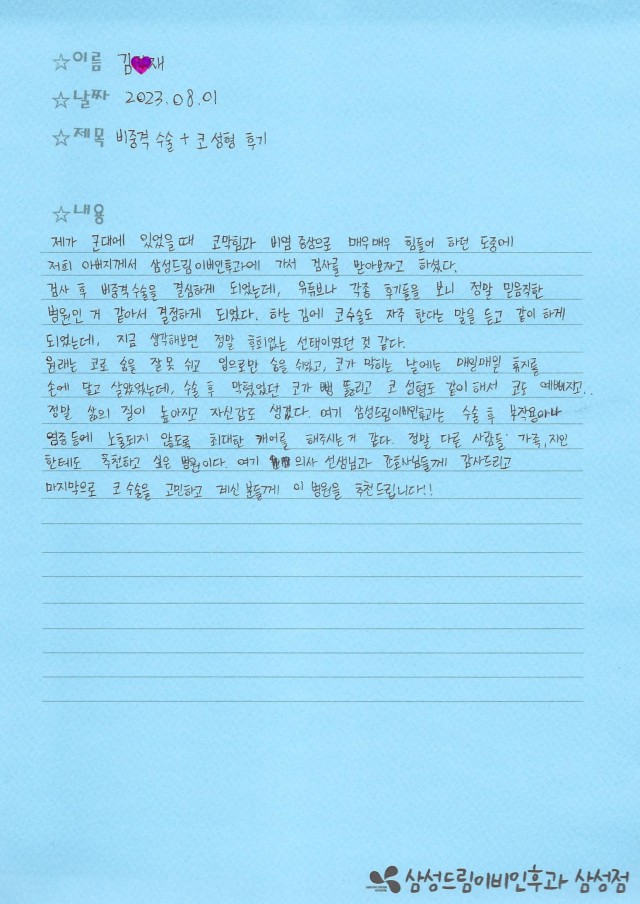 ☆이름 김재
☆날짜 2023.08.01
☆제목 비중격 수술 + 코 성형 후기
☆내용
제가 군대에 있었을때 코막힘과 비염 증상으로 매우매우 힘들어 하던 도중에
저희 아버지께서 삼성드림이비인후과에 가서 검사를 받아보자고 하셨다.
검사 후 비중격수술을 결심하게 되었는데, 유튜브나 각종 후기들을 보니 정말 믿음직한
병원인 거 같아서 결정하게 되었다. 하는 김에 코수술도 자주 한다는 말을 듣고 같이 하게
되었는데, 지금 생각해보면 정말 후회없는 선택이였던 것 같다.
원래는 코로 숨을 잘 못 쉬고 입으로만 숨을 쉬었고, 코가 막히는 날에는 매일매일 휴지를
손에 달고 살았었는데, 수술 후 막혔었던 코가 뻥 뚫리고 코 성형도 같이 해서 코도 예뻐지고..
정말 삶의 질이 높아지고 자신감도 생겼다. 여기 삼성드림이비인후과는 수술 후 부작용이나
염증 등에 노출되지 않도록 최대한 케어를 해주시는 거 같다. 정말 다른 사람들 가족, 지인
한테도 추천하고 싶은 병원이다. 여기 의사 선생님과 간호사님들께 감사드리고
마지막으로 코 수술을 고민하고 계신 분들께 이 병원을 추천드립니다!!
삼성드림이비인후과 삼성점